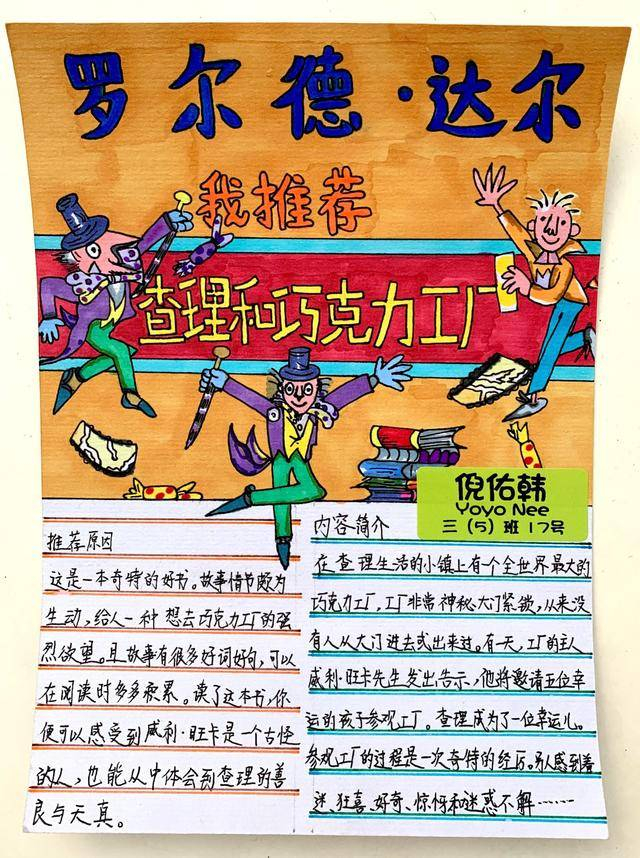 罗尔德·达尔
我推荐
查理和巧克力工厂
倪佑韩
Yoyo Nee
三（5）班 17号
推荐原因
这是一本奇特的好书。故事情节颇为
生动，给人一种想去巧克力工厂的强
烈欲望。且故事有很多好词好句，可以
在阅读时多多积累。读了这本书，你
便可以感受到威利·旺卡是一个古怪
的人，也能从中体会到查理的善
良与天真。
内容简介
在查理生活的小镇上有个全世界最大的
巧克力工厂，工厂非常神秘，大门紧锁，从来没
有人从大门进去或出来过。有一天，工厂的主人
威利·旺卡先生发出告示，他将邀请五位幸
运的孩子参观工厂。查理成为了一位幸运儿。
参观工厂的过程是一次奇特的经历。令人感到着
迷、狂喜、好奇、惊讶和迷惑不解……